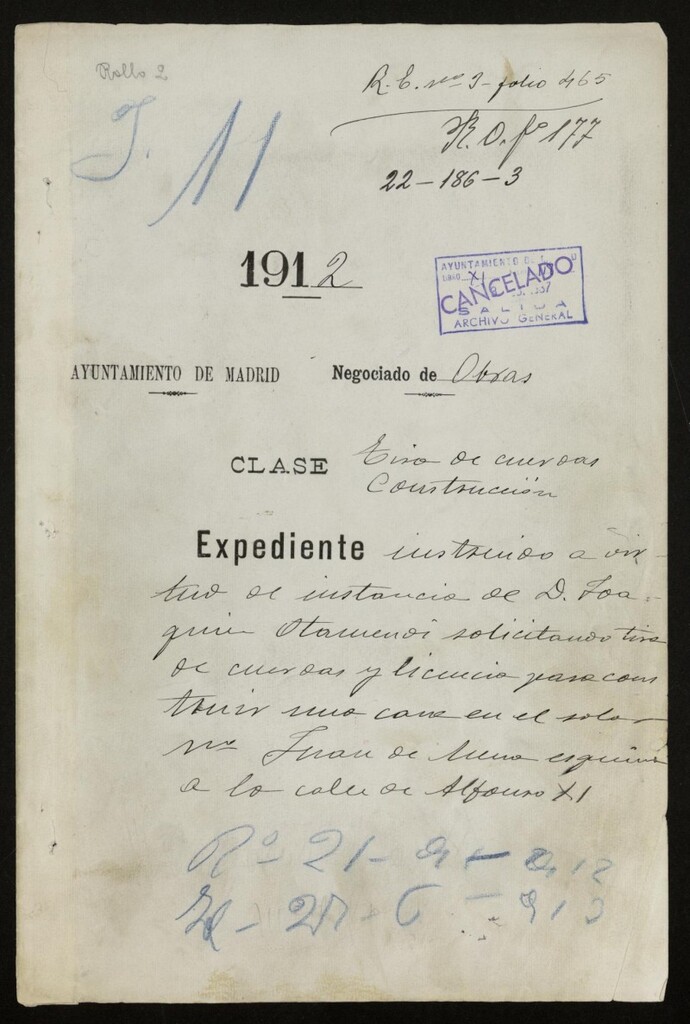 Rollo 2
R. E. nº 3 - folio 465
J. 11
R. O. fº 177
22 - 186 - 3
1912
AYUNTAMIENTO DE
CANCELADO
SALIDA
ARCHIVO GENERAL
AYUNTAMIENTO DE MADRID Negociado de Obras
CLASE Tira de cuerdas
Construcción
Expediente instruido a vir-
tud de instancia de D. Joa-
quin Otamendi solicitando tira
de cuerdas y licencia para cons
truir una casa en el solar
nº Juan de Mena esquina
a la calle de Alfonso XI
Rº 21 - 9 - 912
27 - 6 - 913